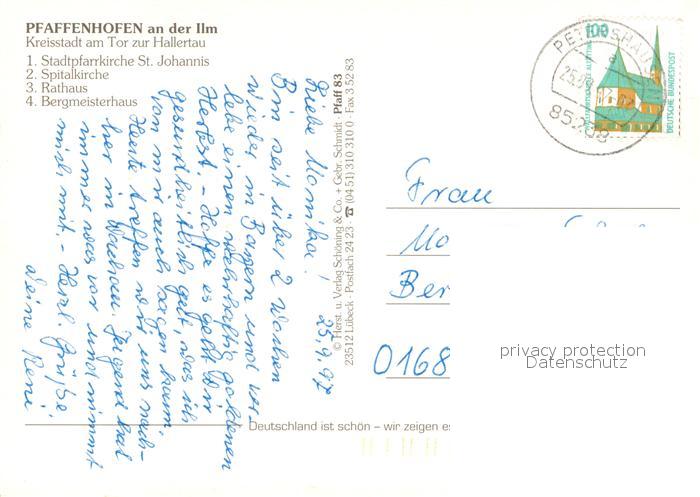 PFAFFENHOFEN an der Ilm
Kreisstadt am Tor zur Hallertau
1. Stadtpfarrkirche St. Johannis
2. Spitalkirche
3. Rathaus
4. Bergmeisterhaus
25.9.97
Liebe Monika!
Bin seit über 2 Wochen
wieder in Bayern und er-
lebe einen wahrhaftig goldenen
Herbst. - Hoffe es geht Dir
gesundheitlich gut, was ich
von mir auch sagen kann.
Heute treffen wir uns nach-
her in Irgend hat
immer was vor und nimmt
mich mit. - Herzl. Grüße
Deine Reni
© Herst. u. Verlag Schöning & Co. + Gebr. Schmidt · Pfaff 83
23512 Lübeck · Postfach 24 23 · ☎ (04 51) 310 310 0 · Fax 3 52 83
Deutschland ist schön – wir zeigen es
100
DEUTSCHE BUNDESPOST
85238
Frau
Mo
Ber
0168
privacy protection
Datenschutz